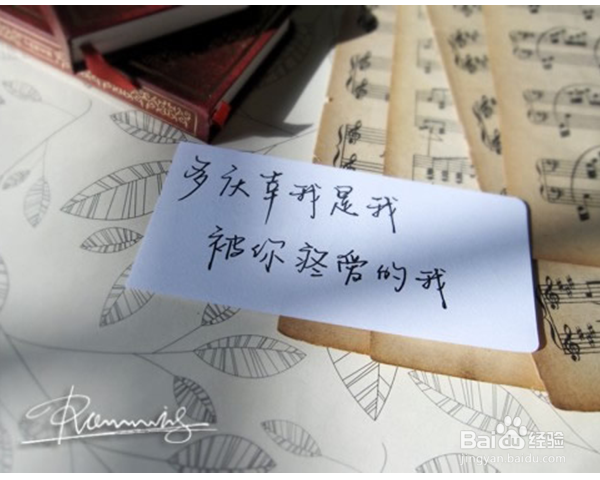 多庆幸我是我
被你疼爱的我
Baidu经验
jingyan.baidu.com